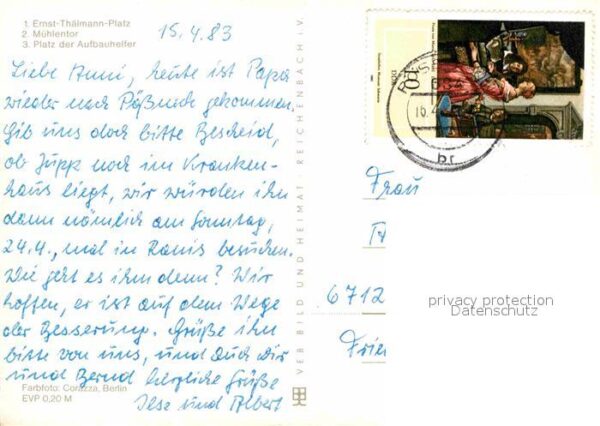 1. Ernst-Thälmann-Platz
2. Mühlentor
3. Platz der Aufbauhelfer
15.4.83
Liebe Anni, heute ist Papa
wieder nach Pößneck gekommen.
Gib uns doch bitte Bescheid,
ob Jupp noch im Kranken-
haus liegt, wir würden ihn
dann nämlich am Sonntag,
24.4., mal in Ranis besuchen.
Wie geht es ihm denn? Wir
hoffen, er ist auf dem Wege
der Besserung. Grüße ihn
bitte von uns, und auch Dir
und Bernd herzliche Grüße
Ilse und Albert
Farbfoto: Corazza, Berlin
EVP 0,20 M
VEB BILD UND HEIMAT · REICHENBACH i.V.
10
DDR
br
Frau
6712
Frie
privacy protection
Datenschutz